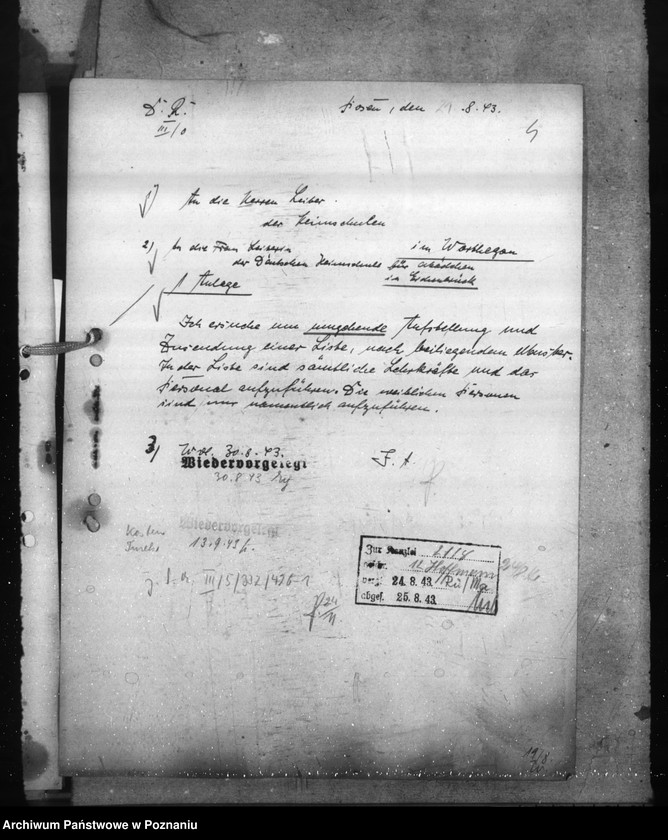 Dr. R.
Posen, den 21.8.43.
III/0
1) An die Herren Leiter
der Heimschulen
2) An die Frau Leiterin
im Warthegau
der Deutschen Heimschule für Mädchen
1 Anlage
Ich ersuche um umgehende Aufstellung und
Zusendung einer Liste, nach beiliegendem Muster.
In der Liste sind sämtliche Lehrkräfte und das
Personal aufzuführen. Die weiblichen Personen
sind nur namentlich aufzuführen.
3) Wvl. 30.8.43.
Wiedervorgelegt
30.8.43
I. A.
Wiedervorgelegt
13.9.43
Zur Kanzlei
Hoffmann
24.8.43. Rü/Ma
abges. 25.8.43.
Archiwum Państwowe w Poznaniu